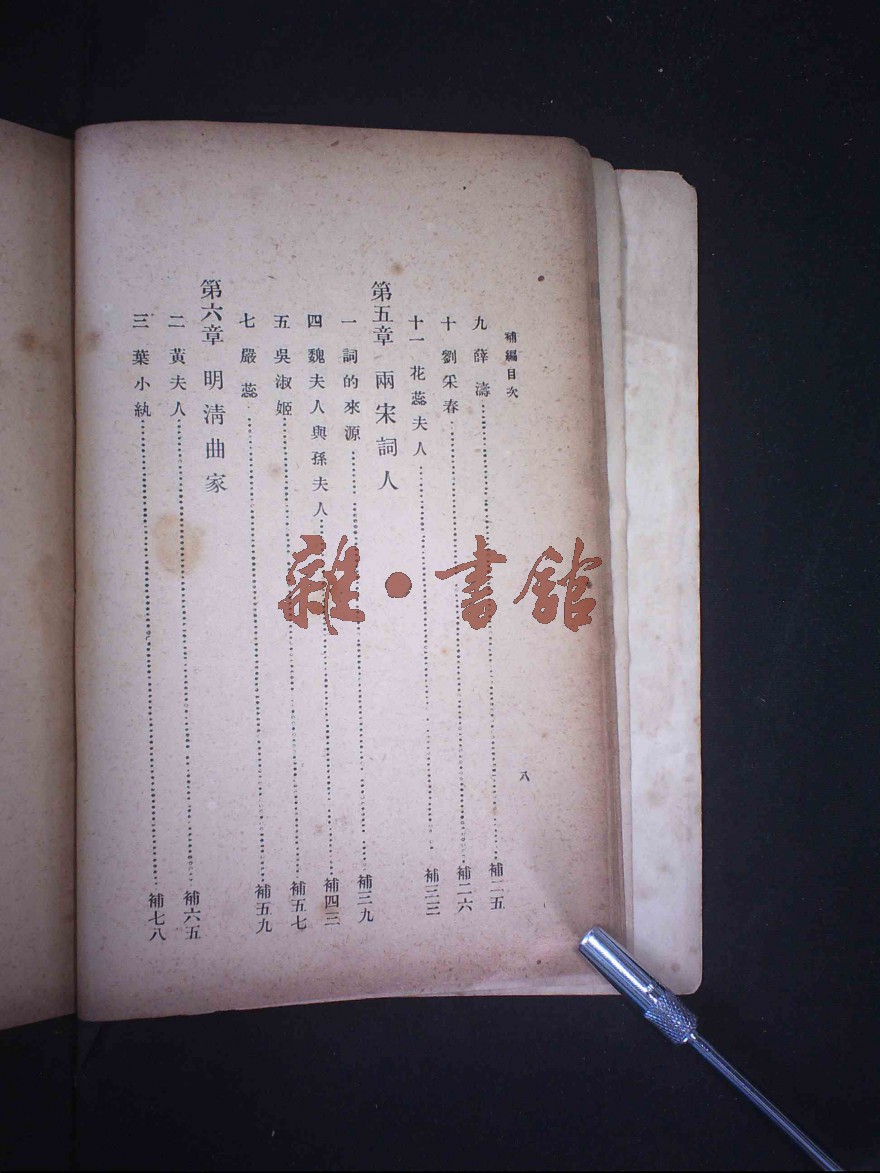 補編目次
八
九 薛濤 補二五
十 劉采春 補二六
十一 花蕊夫人 補三三
第五章 兩宋詞人
一 詞的來源 補三九
四 魏夫人與孫夫人 補四三
五 吳淑姬 補五七
七 嚴蕊 補五九
第六章 明清曲家
二 黃夫人 補六五
三 葉小紈 補七八
雜·書館